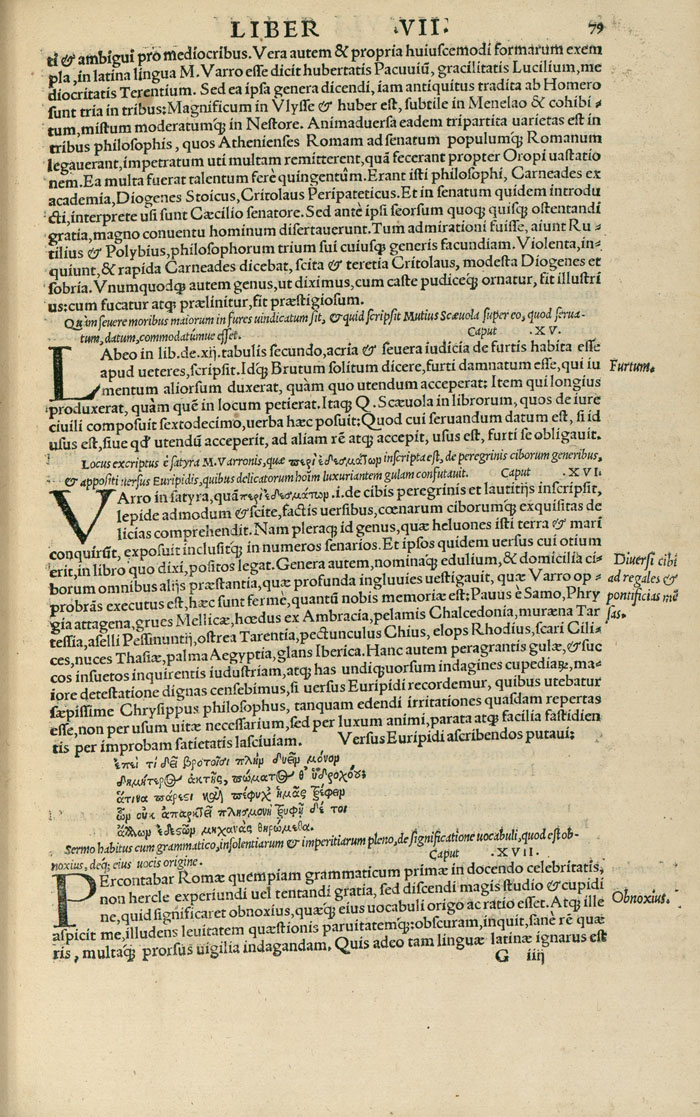 LIBER VII. 79
ti & ambigui pro mediocribus. Vera autem & propria huiuscemodi formarum exem
pla, in latina lingua M. Varro esse dicit hubertatis Pacuuiũ, gracilitatis Lucilium, me
diocritatis Terentium. Sed ea ipsa genera dicendi, iam antiquitus tradita ab Homero
sunt tria in tribus: Magnificum in Vlysse & huber est, subtile in Menelao & cohibi-
tum, mistum moderatumq̃ in Nestore. Animaduersa eadem tripartita uarietas est in
tribus philosophis, quos Athenienses Romam ad senatum populumq̃ Romanum
legauerant, impetratum uti multam remitterent, quã fecerant propter Oropi uastatio
nem. Ea multa fuerat talentum ferè quingentũm. Erant isti philosophi, Carneades ex
academia, Diogenes Stoicus, Critolaus Peripateticus. Et in senatum quidem introdu
cti, interprete usi sunt Cæcilio senatore. Sed antè ipsi seorsum quoq̃ quisq̃ ostentandi
gratia, magno conuentu hominum disertauerunt. Tum admirationi fuisse, aiunt Ru-
tilius & Polybius, philosophorum trium sui cuiusq̃ generis facundiam. Violenta, in-
quiunt, & rapida Carneades dicebat, scita & teretia Critolaus, modesta Diogenes et
sobria. Vnumquodq̃ autem genus, ut diximus, cum caste pudiceq̃ ornatur, fit illustri
us: cum fucatur atq̃ prælinitur, fit præstigiosum.
Quàm seuere moribus maiorum in fures uindicatum sit, & quid scripsit Mutius Scæuola super eo, quod serua-
tum, datum, commodatúmue esset. Caput .XV.
LAbeo in lib. de.xij. tabulis secundo, acria & seuera iudicia de furtis habita esse
apud ueteres, scripsit. Idq̃ Brutum solitum dicere, furti damnatum esse, qui iu
mentum aliorsum duxerat, quàm quo utendum acceperat: Item qui longius
produxerat, quàm quẽ in locum petierat. Itaq̃ Q. Scæuola in librorum, quos de iure
ciuili composuit sextodecimo, uerba hæc posuit: Quod cui seruandum datum est, si id
usus est, siue qd' utendũ acceperit, ad aliam rẽ atq̃ accepit, usus est, furti se obligauit.
Furtum.
Locus excriptus è satyra M. Varronis, quæ περὶ ἐδεσμάτωμ inscripta est, de peregrinis ciborum generibus,
& appositi uersus Euripidis, quibus delicatorum hoĩm luxuriantem gulam confutauit. Caput .XVI.
VArro in satyra, quã περὶ ἐδεσμάτωμ .i. de cibis peregrinis et lautitijs inscripsit,
lepide admodum & scite, factis uersibus, cœnarum ciborumq̃ exquisitas de
licias comprehendit. Nam pleraq̃ id genus, quæ heluones isti terra & mari
conquirũt, exposuit inclusitq̃ in numeros senarios. Et ipsos quidem uersus cui otium
erit, in libro quo dixi, positos legat. Genera autem, nominaq̃ edulium, & domicilia ci-
borum omnibus alijs præstantia, quæ profunda ingluuies uestigauit, quæ Varro op-
probrãs executus est, hæc sunt fermè, quantũ nobis memoriæ est: Pauus è Samo, Phry
gia attagena, grues Mellicæ, hœdus ex Ambracia, pelamis Chalcedonia, muræna Tar
tessia, aselli Pessinuntij, ostrea Tarentia, pectunculus Chius, elops Rhodius, scari Cili-
ces, nuces Thasiæ, palma Aegyptia, glans Iberica. Hanc autem peragrantis gulæ, & suc
cos insuetos inquirentis iudustriam, atq̃ has undiq̃uorsum indagines cupediarũ, ma-
iore detestatione dignas censebimus, si uersus Euripidi recordemur, quibus utebatur
sæpissime Chrysippus philosophus, tanquam edendi irritationes quasdam repertas
esse, non per usum uitæ necessarium, sed per luxum animi, parata atq̃ facilia fastidien
tis per improbam satietatis lasciuiam. Versus Euripidi ascribendos putaui:
Diuersi cibi
ad regales &
pontificias mẽ
sas.
ἐπεὶ τί δεῖ βροτοῖσι πλὴμ δυεῖμ μόνομ
δημήτερος ἀκτῆς, πώματος θ' ὑδροχόου:
ἅτινα πάρεσι καὶ πέφυχ' ἡμᾶς τρέφειμ
ὧμ οὐκ ἀπαρκεῖ πλησμονή τρυφῇ δέ τοι
ἄλλωμ ἐδεσῶμ μηχανὰς θηρώμεθα.
Sermo habitus cum grammatico, insolentiarum & imperitiarum pleno, de significatione uocabuli, quod est ob-
noxius, deq̃ eius uocis origine. Caput .XVII.
PErcontabar Romæ quempiam grammaticum primæ in docendo celebritatis,
non hercle experiundi uel tentandi gratia, sed discendi magis studio & cupidi
ne, quid significaret obnoxius, quæq̃ eius uocabuli origo ac ratio esset. Atq̃ ille
aspicit me, illudens leuitatem quæstionis paruitatemq̃: obscuram, inquit, sanè rẽ quæ
ris, multaq̃ prorsus uigilia indagandam. Quis adeo tam linguæ latinæ ignarus est
Obnoxius.
G iiij